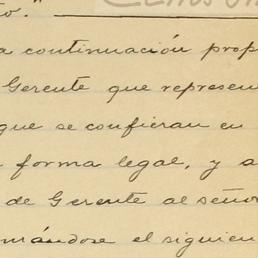 to."
a continuación prop
Gerente que represen
que se confieran en
forma legal, y a
de Gerente al seño
mándose el siguien